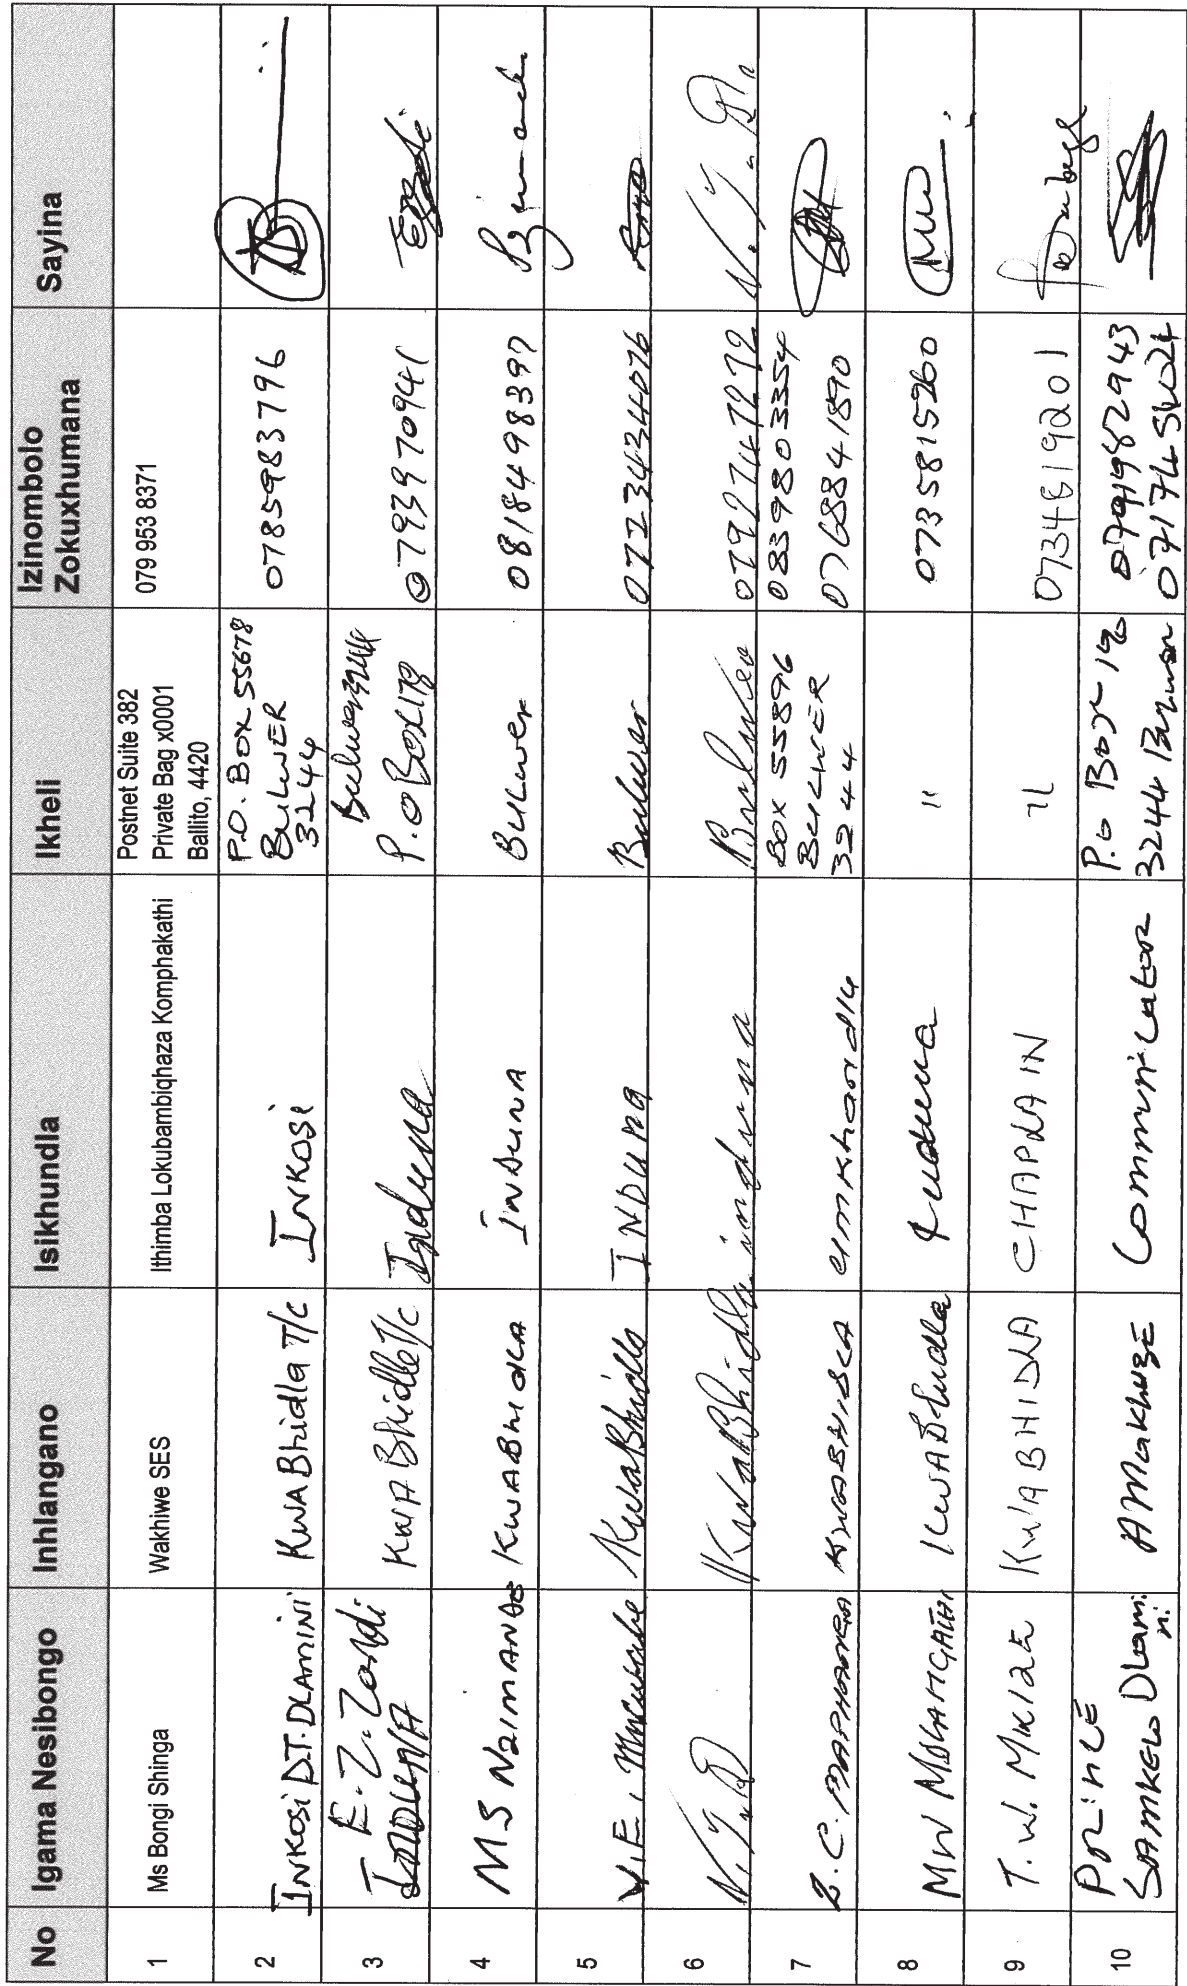 No Igama Nesibongo Inhlangano Isikhundla Ikheli Izinombolo Zokuxhumana Sayina
1 Ms Bongi Shinga Wakhiwe SES Ithimba Lokubambiqhaza Komphakathi Postnet Suite 382
Private Bag x0001
Ballito, 4420
079 953 8371
2 INKOSI D.T. DLAMINI KWABhidla T/C INKOSI P.O. BOX 55678
BULWER
3244
0785983796
3 E. Z. Zondi KWABhidla T/C Induna Bulwer 3244
P.O Box 178
0793970941
4 MS NZIMANDE KWABhidla INDUNA BULWER 0818498397
5 V.E. KwaBhidla INDUNA Bulwer 0723434076
6 KwaBhidla induna Bulwer 0792747272
7 Z.C. MAPHANGA KWABHIDLA umkhandlu BOX 55896
BULWER
3244
0839803354
0768841890
8 MW KWABhidla Induna " 0735815260
9 T.W. MKIZE KWABHIDLA CHAPLAIN " 0734819201
10 PRINCE
SAMKELO Dlamini
AMAKHUZE Communicator P.O Box
3244 Bulwer
0791982943